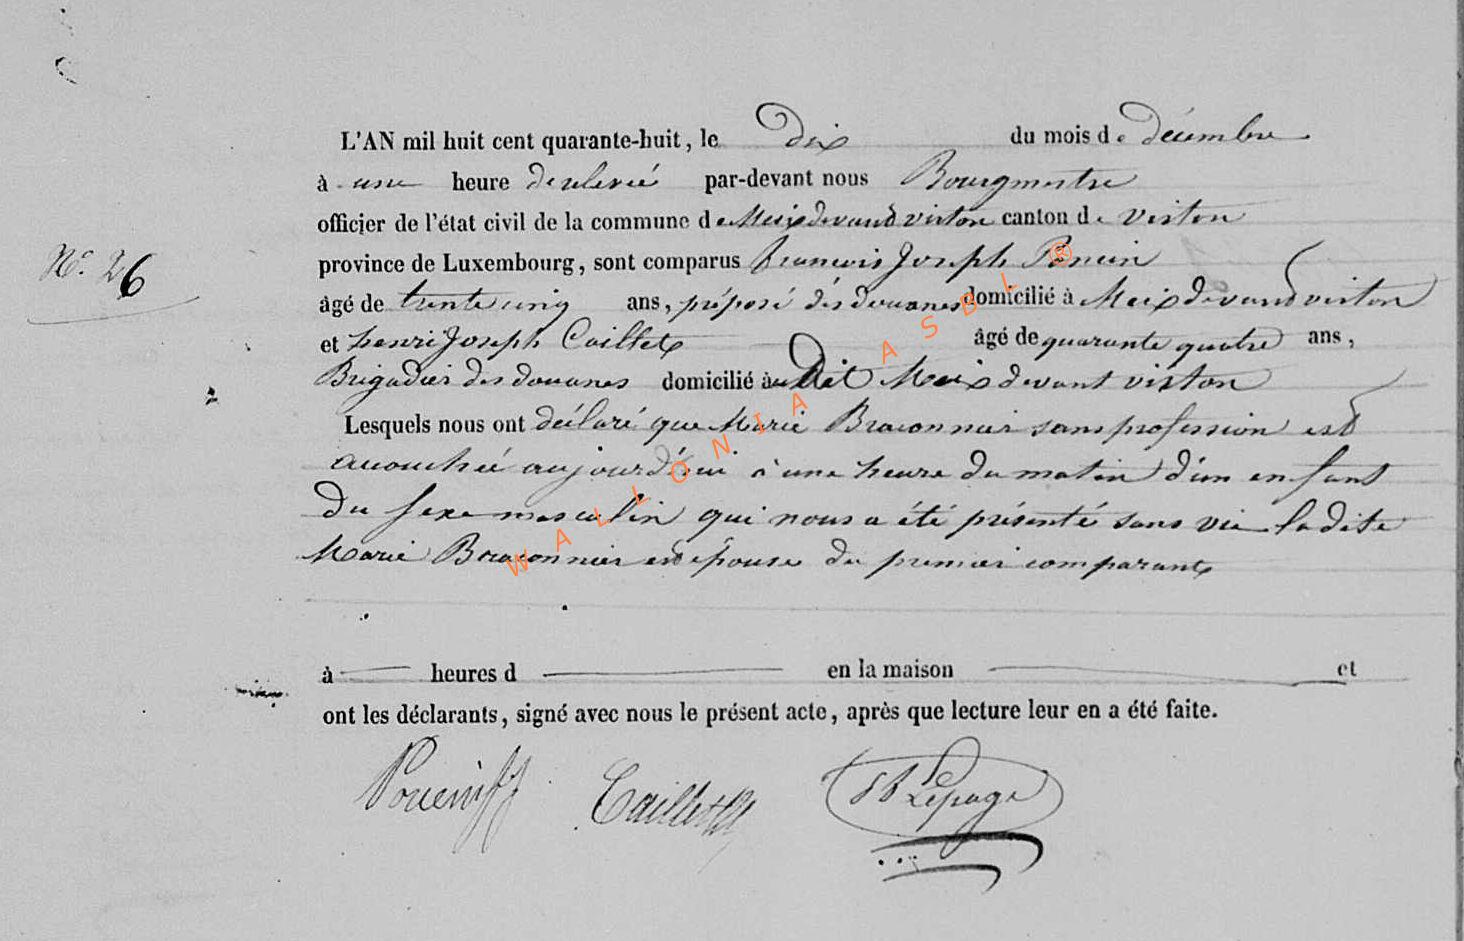 L'AN mil huit cent quarante-huit, le Dix du mois de Décembre
à une heure de relevée par-devant nous Bourgmestre
officier de l'état civil de la commune de Meixdevand virton canton de virton
N° 26
province de Luxembourg, sont comparus francois Joseph Poncin
âgé de trente cinq ans, préposé dès douanes domicilié à Meix devand virton
et henri Joseph Caillet âgé de quarante quatre ans,
Brigadier des douanes domicilié au Dit Meix devant virton
Lesquels nous ont déclaré que Marie Braconnier sans profession est
accouchée aujourd'hui à une heure du matin d'un enfant
Du sexe masculin qui nous a été présenté sans vie ladite
Marie Braconnier est épouse du premier comparant
à heures d en la maison et
ont les déclarants, signé avec nous le présent acte, après que lecture leur en a été faite.
Poncin fJ Caillet Lepage
WALLONIA ASBL ®